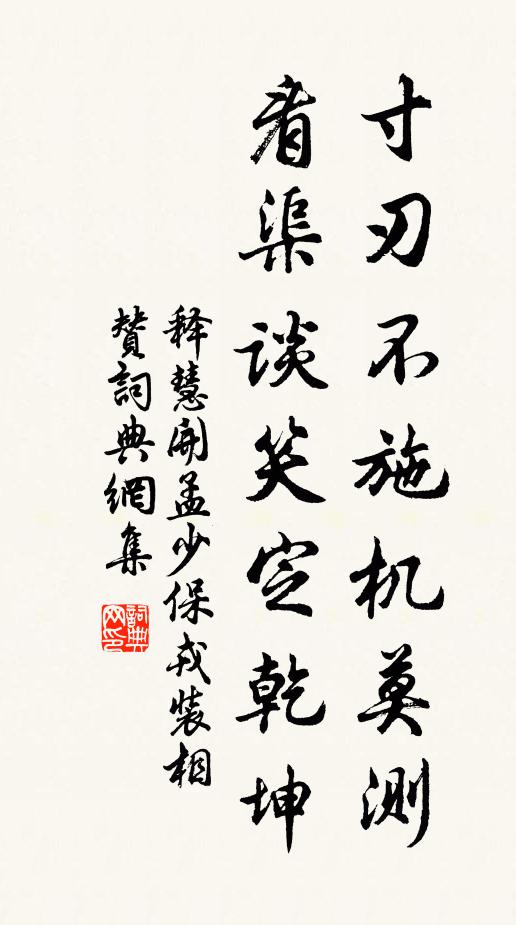 寸刃不施机莫测
看渠谈笑定乾坤
释慧開孟少保戎裝相
贊詞典網集
詞典网印